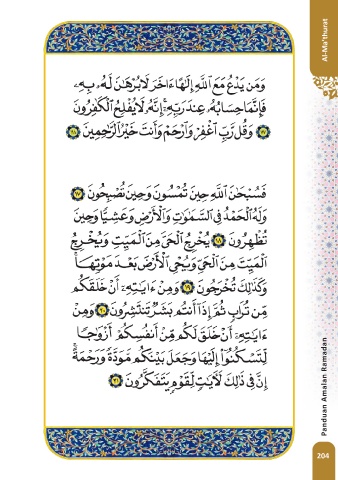 Al-Ma'thurat
وَمَن يَدْعُ مَعَ ٱللَّهِ إِلَٰهًا ءَاخَرَ لَا بُرْهَٰنَ لَهُۥ بِهِۦ
فَإِنَّمَا حِسَابُهُۥ عِندَ رَبِّهِۦٓ ۚ إِنَّهُۥ لَا يُفْلِحُ ٱلْكَٰفِرُونَ
﴿١١٧﴾ وَقُل رَّبِّ ٱغْفِرْ وَٱرْحَمْ وَأَنتَ خَيْرُ ٱلرَّٰحِمِينَ ﴿١١٨﴾
فَسُبْحَٰنَ ٱللَّهِ حِينَ تُمْسُونَ وَحِينَ تُصْبِحُونَ ﴿١٧﴾
وَلَهُ ٱلْحَمْدُ فِى ٱلسَّمَٰوَٰتِ وَٱلْأَرْضِ وَعَشِيًّا وَحِينَ
تُظْهِرُونَ ﴿١٨﴾ يُخْرِجُ ٱلْحَىَّ مِنَ ٱلْمَيِّتِ وَيُخْرِجُ
ٱلْمَيِّتَ مِنَ ٱلْحَىِّ وَيُحْىِ ٱلْأَرْضَ بَعْدَ مَوْتِهَا ۚ
وَكَذَٰلِكَ تُخْرَجُونَ ﴿١٩﴾ وَمِنْ ءَايَٰتِهِۦٓ أَنْ خَلَقَكُم
مِّن تُرَابٍ ثُمَّ إِذَآ أَنتُم بَشَرٌ تَنتَشِرُونَ ﴿٢٠﴾ وَمِنْ
ءَايَٰتِهِۦٓ أَنْ خَلَقَ لَكُم مِّنْ أَنفُسِكُمْ أَزْوَٰجًا
لِّتَسْكُنُوٓا۟ إِلَيْهَا وَجَعَلَ بَيْنَكُم مَّوَدَّةً وَرَحْمَةً ۚ
إِنَّ فِى ذَٰلِكَ لَءَايَٰتٍ لِّقَوْمٍ يَتَفَكَّرُونَ ﴿٢١﴾
Panduan Amalan Ramadan
204